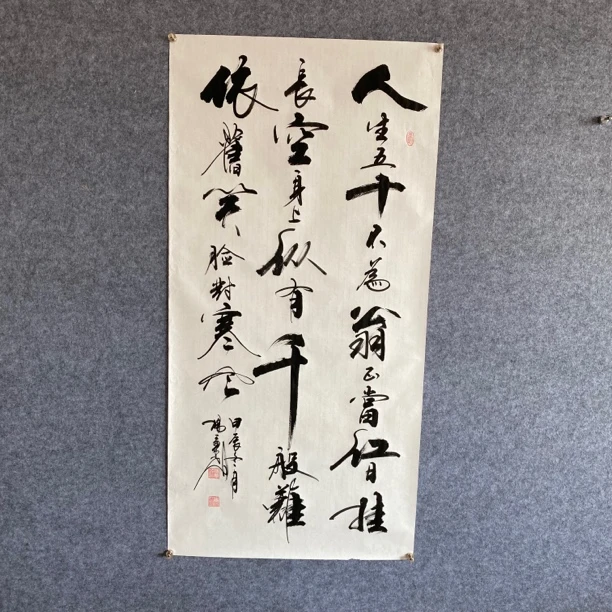 人生五十不為翁正當紅日挂
長空身上縱有千般難
依舊笑臉對寒風
甲辰十二月